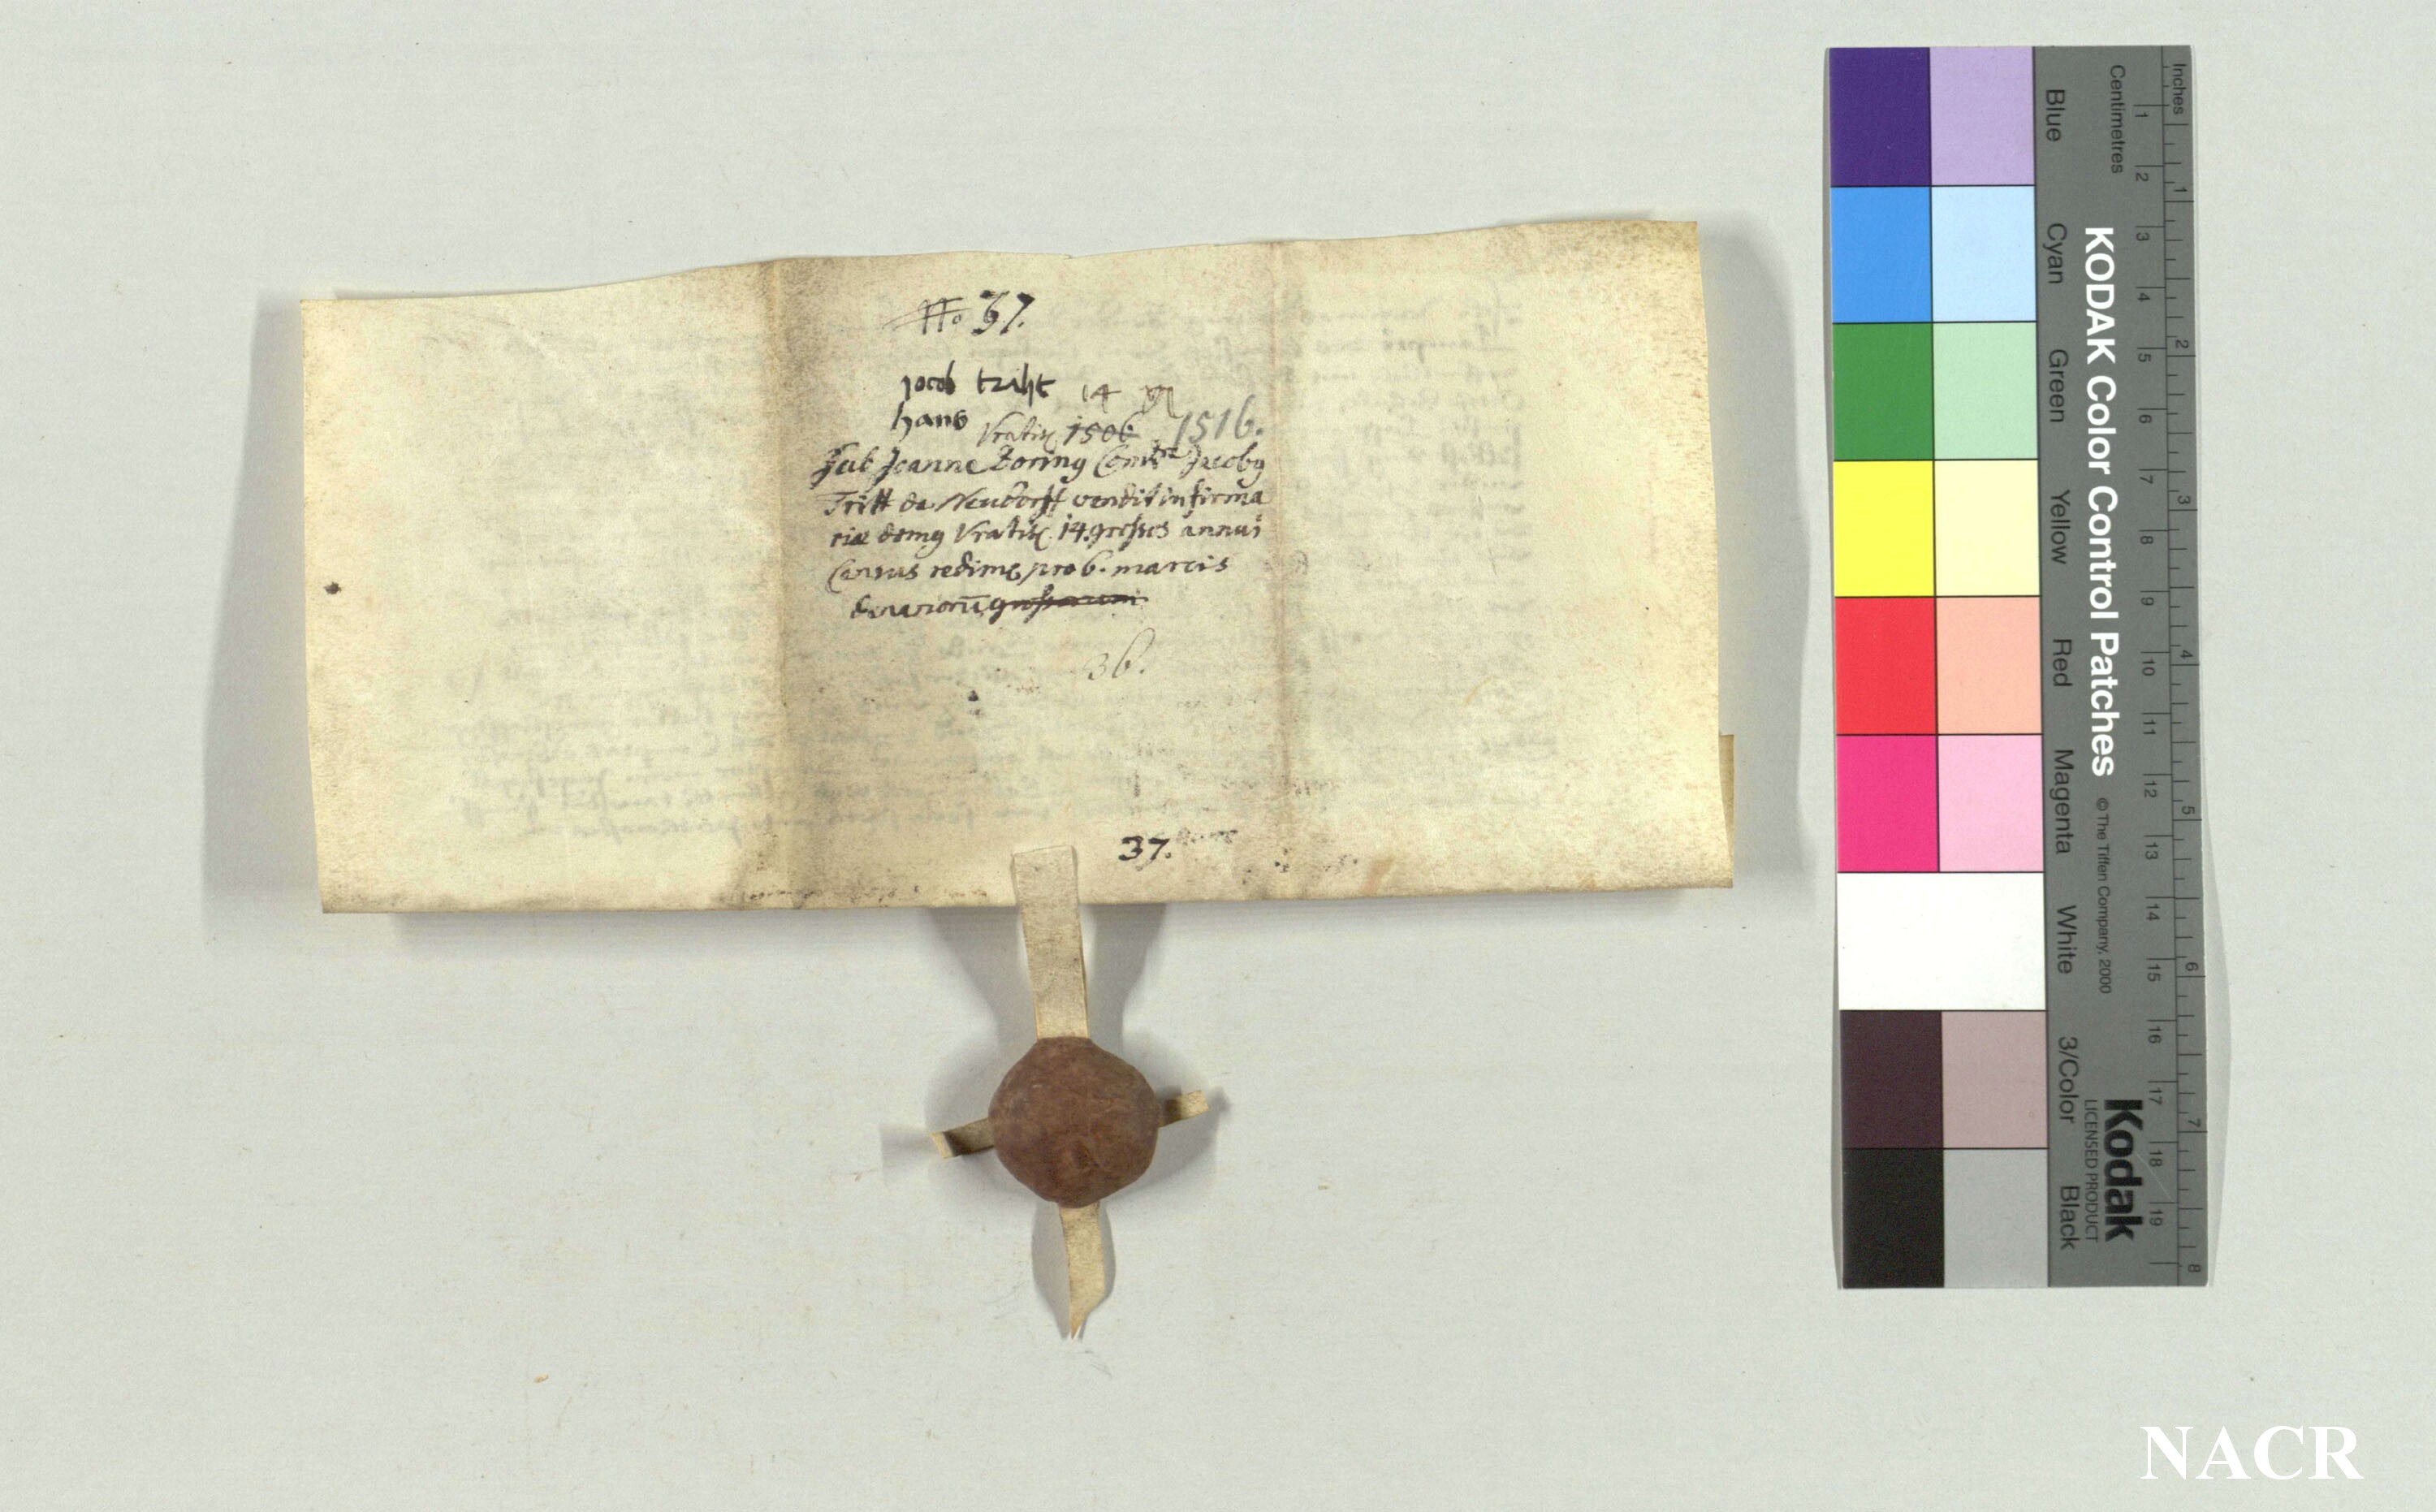 No 37.
jocob tzilt 14 gr
hans
Vratisl. 1506 1516.
Sub Joanne Boring Comdre Jacobg
Tritt de Neudorff vendit infirma
riæ domg Vratisl. 14. grossos annui
Census redimē pro 6. marcis
denariorū grossorum
36.
37.
KODAK Color Control Patches
© The Tiffen Company, 2000
Kodak
LICENSED PRODUCT
Blue Cyan Green Yellow Red Magenta White 3/Color Black
Centimetres
1 2 3 4 5 6 7 8 9 10 11 12 13 14 15 16 17 18 19
Inches
1 2 3 4 5 6 7 8
NACR